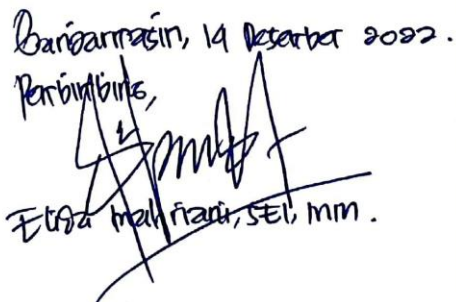 Banjarmasin, 14 Desember 2022.
Pembimbing,
Elisa Mahriani, SEI, MM.